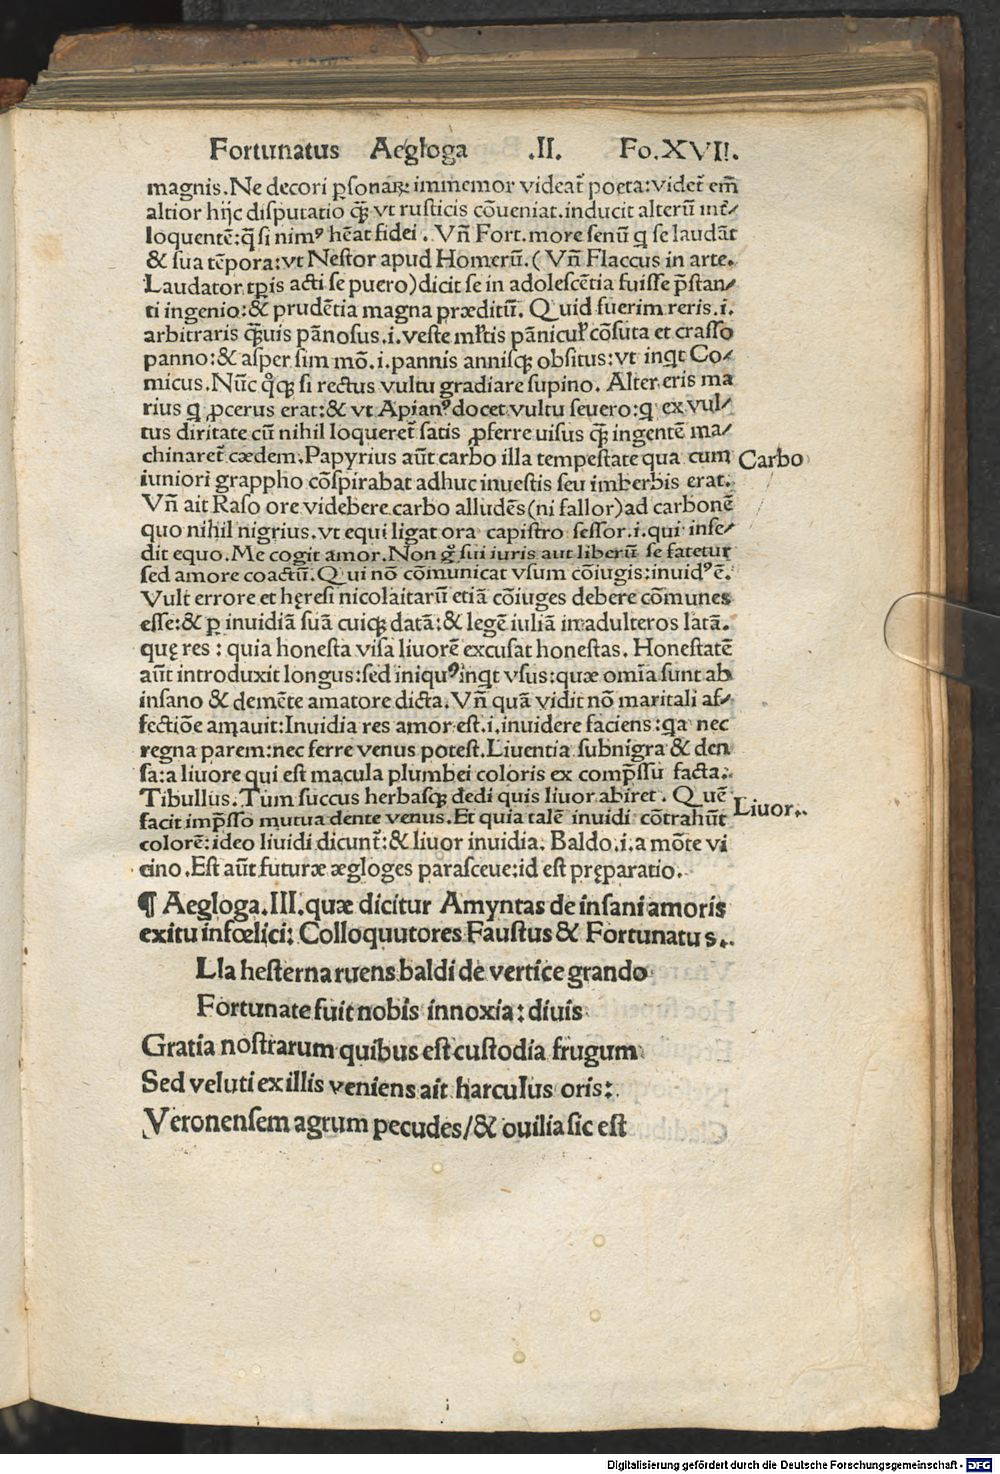 Fortunatus Aegloga .II. Fo.XVII.
magnis. Ne decori ꝑſonaꝝ immemor videat᷑ poeta: videt᷑ em̄
altior hijc diſputatio q̄ꝫ vt ruſticis cōueniat. inducit alterū int̄⸗
loquentē: q̄ ſi nimꝰ hēat fidei. Vn̄ Fort. more ſenū q ſe laudāt
& ſua tēpora: vt Neſtor apud Homerū. (Vn̄ Flaccus in arte.
Laudator tꝑis acti ſe puero) dicit ſe in adoleſcētia fuiſſe p̄ſtan⸗
ti ingenio: & prudētia magna præditū. Quid fuerim reris .i.
arbitraris q̄ꝫuis pānoſus .i. veſte ml̄tis pānicul̄ cōſuta et craſſo
panno: & aſper ſim mō .i. pannis anniſqꝫ obſitus: vt inqt Co⸗
micus. Nūc qͥqꝫ ſi rectus vultu gradiare ſupino. Alter eris ma
rius q ꝓcerus erat: & vt Apianꝰ docet vultu ſeuero: q ex vul⸗
tus diritate cū nihil loqueret᷑ ſatis ꝓferre uiſus q̄ꝫ ingentē ma⸗
chinaret᷑ cædem. Papyrius aūt carbo illa tempeſtate qua cum
iuniori grappho cōſpirabat adhuc inueſtis ſeu imberbis erat.
Carbo
Vn̄ ait Raſo ore videbere carbo alludēs (ni fallor) ad carbonē
quo nihil nigrius. vt equi ligat ora capiſtro ſeſſor .i. qui inſe⸗
dit equo. Me cogit amor. Non g̊ ſui iuris aut liberū ſe fatetur
ſed amore coactū. Qui nō cōmunicat vſum cōiugis: inuidꝰ ē.
Vult errore et hęreſi nicolaitarū etiā cōiuges debere cōmunes
eſſe: & ꝑ inuidiā ſuā cuiqꝫ datā: & legē iuliā in adulteros latā.
quę res: quia honeſta viſa liuorē excuſat honeſtas. Honeſtatē
aūt introduxit longus: ſed iniquꝰ inqt vſus: quæ omīa ſunt ab
inſano & demēte amatore dicta. Vn̄ quā vidit nō maritali af⸗
fectiōe amauit: Inuidia res amor eſt .i. inuidere faciens: qa nec
regna parem: nec ferre venus poteſt. Liuentia ſubnigra & den
ſa: a liuore qui eſt macula plumbei coloris ex comp̄ſſu facta.
Tibullus. Tum ſuccus herbaſqꝫ dedi quis liuor abiret. Quē
facit imp̄ſſo mutua dente venus. Et quia talē inuidi cōtrahūt
Liuor.
colorē: ideo liuidi dicunt᷑: & liuor inuidia. Baldo .i. a mōte vi
cino. Eſt aūt futuræ ægloges paraſceue: id eſt pręparatio.
¶ Aegloga .III. quæ dicitur Amyntas de inſani amoris
exitu infœlici: Colloquutores Fauſtus & Fortunatus.
Lla heſterna ruens baldi de vertice grando
Fortunate fuit nobis innoxia: diuis
Gratia noſtrarum quibus eſt cuſtodia frugum
Sed veluti ex illis veniens ait harculus oris:
Veronenſem agrum pecudes/ & ouilia sic eſt
Digitalisierung gefördert durch die Deutsche Forschungsgemeinschaft - DFG